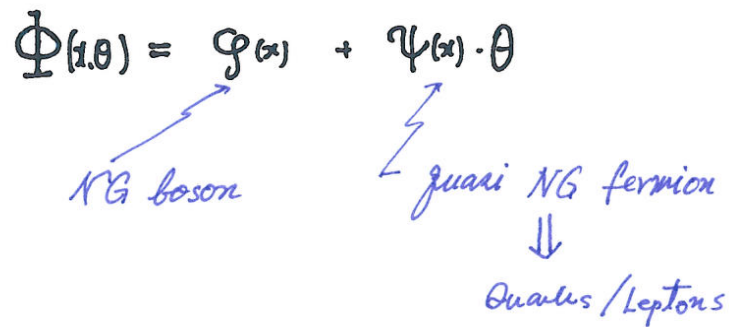 Φ(x,θ) = φ(x) + ψ(x)·θ
NG boson quasi NG fermion
⇓
Quarks/Leptons